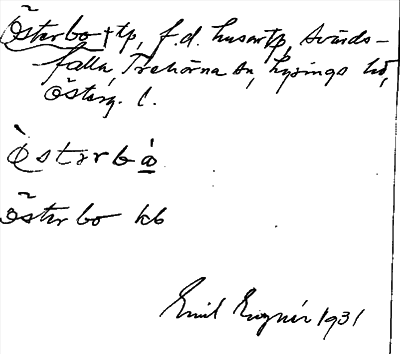 Österbo † tp, f.d. husartp, Svärds-
falla, Trehörna sn, Ydings hd,
Österg. l.
Òstərbò
Österbo kb
Emil Eugnér 1931